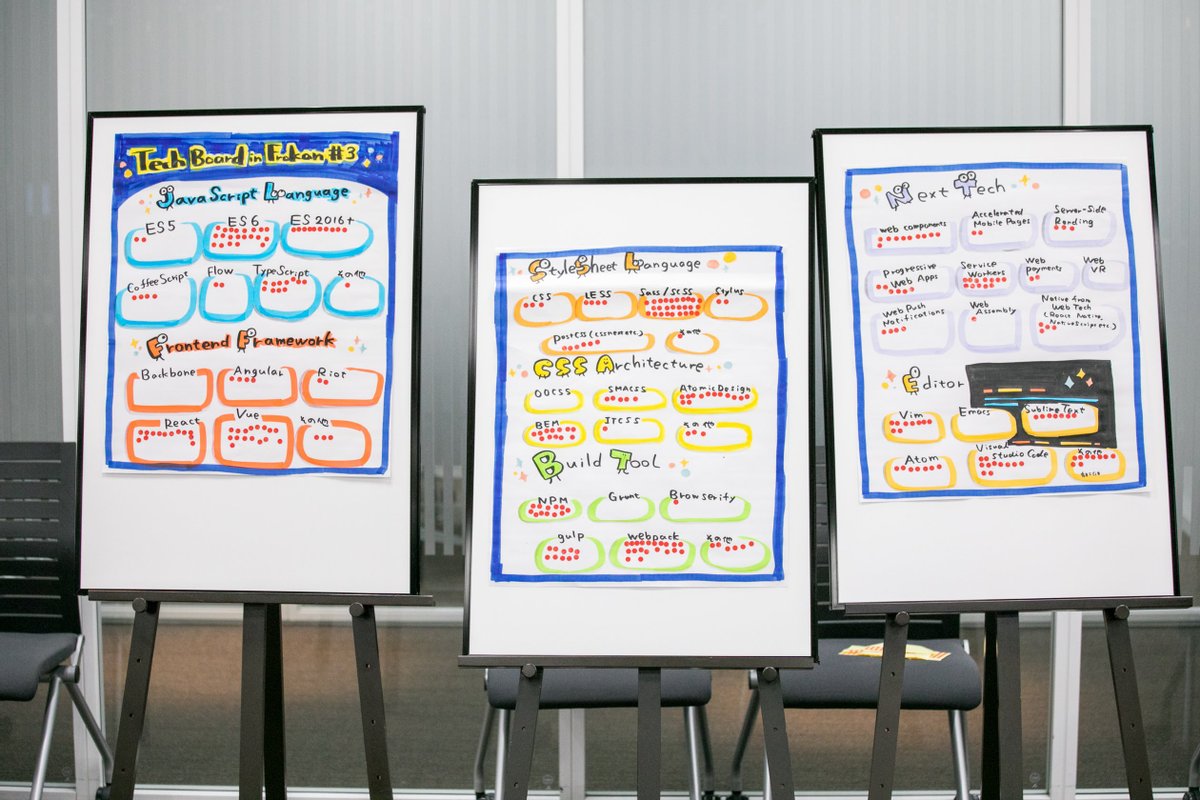 Tech Board in Frokan #3
JavaScript Language
ES5
ES6
ES 2016+
CoffeeScript
Flow
TypeScript
その他
Frontend Framework
Backbone
Angular
Riot
React
Vue
その他
StyleSheet Language
CSS
LESS
Sass/SCSS
Stylus
PostCSS (cssnext etc.)
その他
CSS Architecture
OOCSS
SMACSS
Atomic Design
BEM
ITCSS
その他
Build Tool
NPM
Grunt
Browserify
gulp
webpack
その他
Next Tech
web components
Accelerated
Mobile Pages
Server-Side
Rending
Progressive
Web Apps
Service
Workers
Web
payments
Web
VR
Web Push
Notifications
Web
Assembly
Native from
Web Tech
(React Native,
NativeScript etc.)
Editor
Vim
Emacs
Sublime Text
Atom
Visual
Studio Code
その他